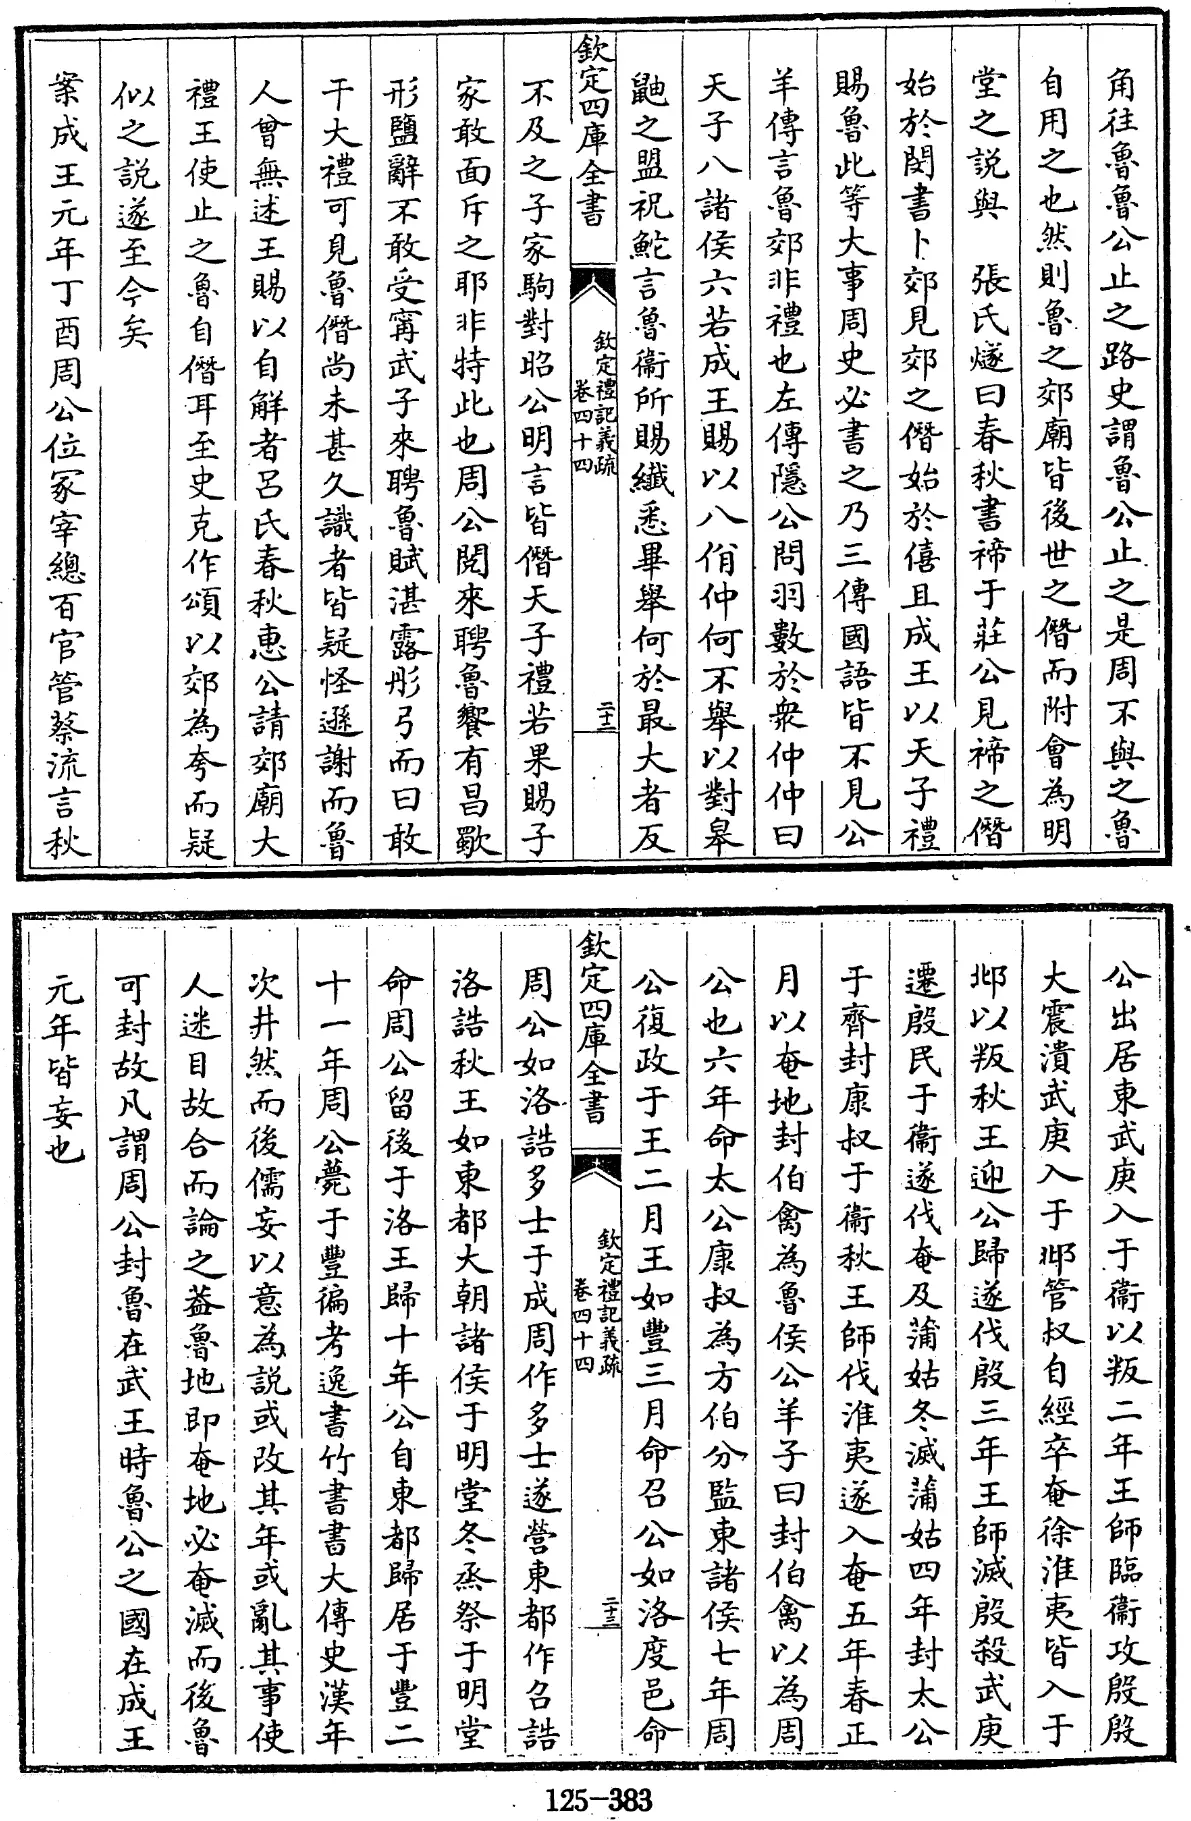 角往魯魯公止之路史謂魯公止之是周不與之魯
自用之也然則魯之郊廟皆後世之僭而附會為明
堂之說與　張氏燧曰春秋書禘于莊公見禘之僭
始於閔書卜郊見郊之僭始於僖且成王以天子禮
賜魯此等大事周史必書之乃三傳國語皆不見公
羊傳言魯郊非禮也左傳隱公問羽數於衆仲仲曰
天子八諸侯六若成王賜以八佾仲何不舉以對皋
鼬之盟祝鮀言魯衞所賜纖悉畢舉何於最大者反
欽定四庫全書
欽定禮記義疏
卷四十四
二十二
不及之子家駒對昭公明言皆僭天子禮若果賜子
家敢面斥之耶非特此也周公閱來聘魯饗有昌歜
形鹽辭不敢受甯武子來聘魯賦湛露彤弓而曰敢
干大禮可見魯僭尚未甚久識者皆疑怪遜謝而魯
人曾無述王賜以自解者呂氏春秋惠公請郊廟大
禮王使止之魯自僭耳至史克作頌以郊為夸而疑
似之說遂至今矣
案成王元年丁酉周公位冢宰總百官管蔡流言秋
公出居東武庚入于衞以叛二年王師臨衞攻殷殷
大震潰武庚入于邶管叔自經卒奄徐淮夷皆入于
邶以叛秋王迎公歸遂伐殷三年王師滅殷殺武庚
遷殷民于衞遂伐奄及蒲姑冬滅蒲姑四年封太公
于齊封康叔于衞秋王師伐淮夷遂入奄五年春正
月以奄地封伯禽為魯侯公羊子曰封伯禽以為周
公也六年命太公康叔為方伯分監東諸侯七年周
公復政于王二月王如豐三月命召公如洛度邑命
欽定四庫全書
欽定禮記義疏
卷四十四
二十三
周公如洛誥多士于成周作多士遂營東都作召誥
洛誥秋王如東都大朝諸侯于明堂冬烝祭于明堂
命周公留後于洛王歸十年公自東都歸居于豐二
十一年周公薨于豐徧考逸書竹書書大傳史漢年
次井然而後儒妄以意為說或改其年或亂其事使
人迷目故合而論之葢魯地即奄地必奄滅而後魯
可封故凡謂周公封魯在武王時魯公之國在成王
元年皆妄也
125-383